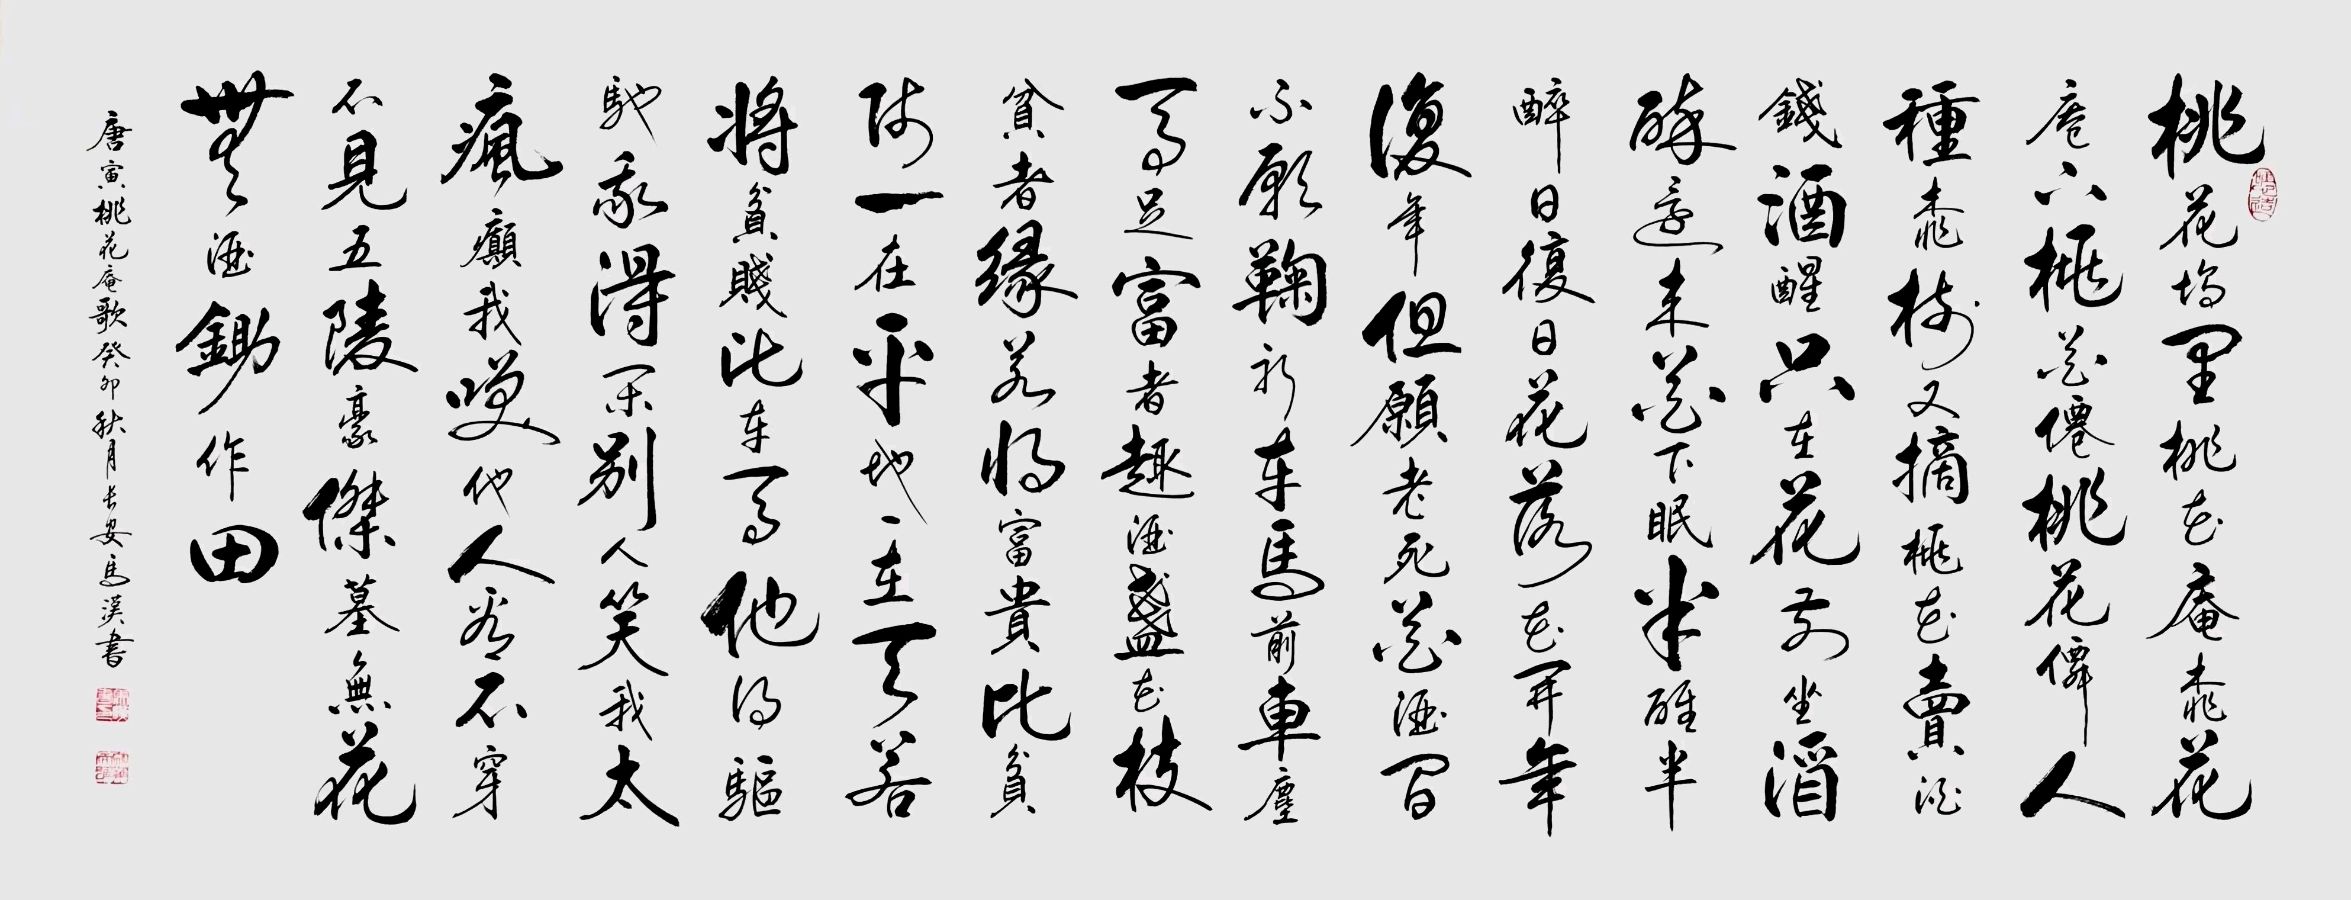 桃花塢里桃花庵桃花
庵下桃花僊桃花僊人
種桃樹又摘桃花賣酒
錢酒醒只在花前坐酒
醉還來花下眠半醒半
醉日復日花落花開年
復年但願老死花酒間
不願鞠躬車馬前車塵
馬足富者趣酒盞花枝
貧者緣若將富貴比貧
賤一在平地一在天若
將貧賤比車馬他得驅
馳我得閑別人笑我太
瘋癲我嘆他人看不穿
不見五陵豪傑墓無花
無酒鋤作田
唐寅桃花庵歌癸卯秋月長安馬漢書